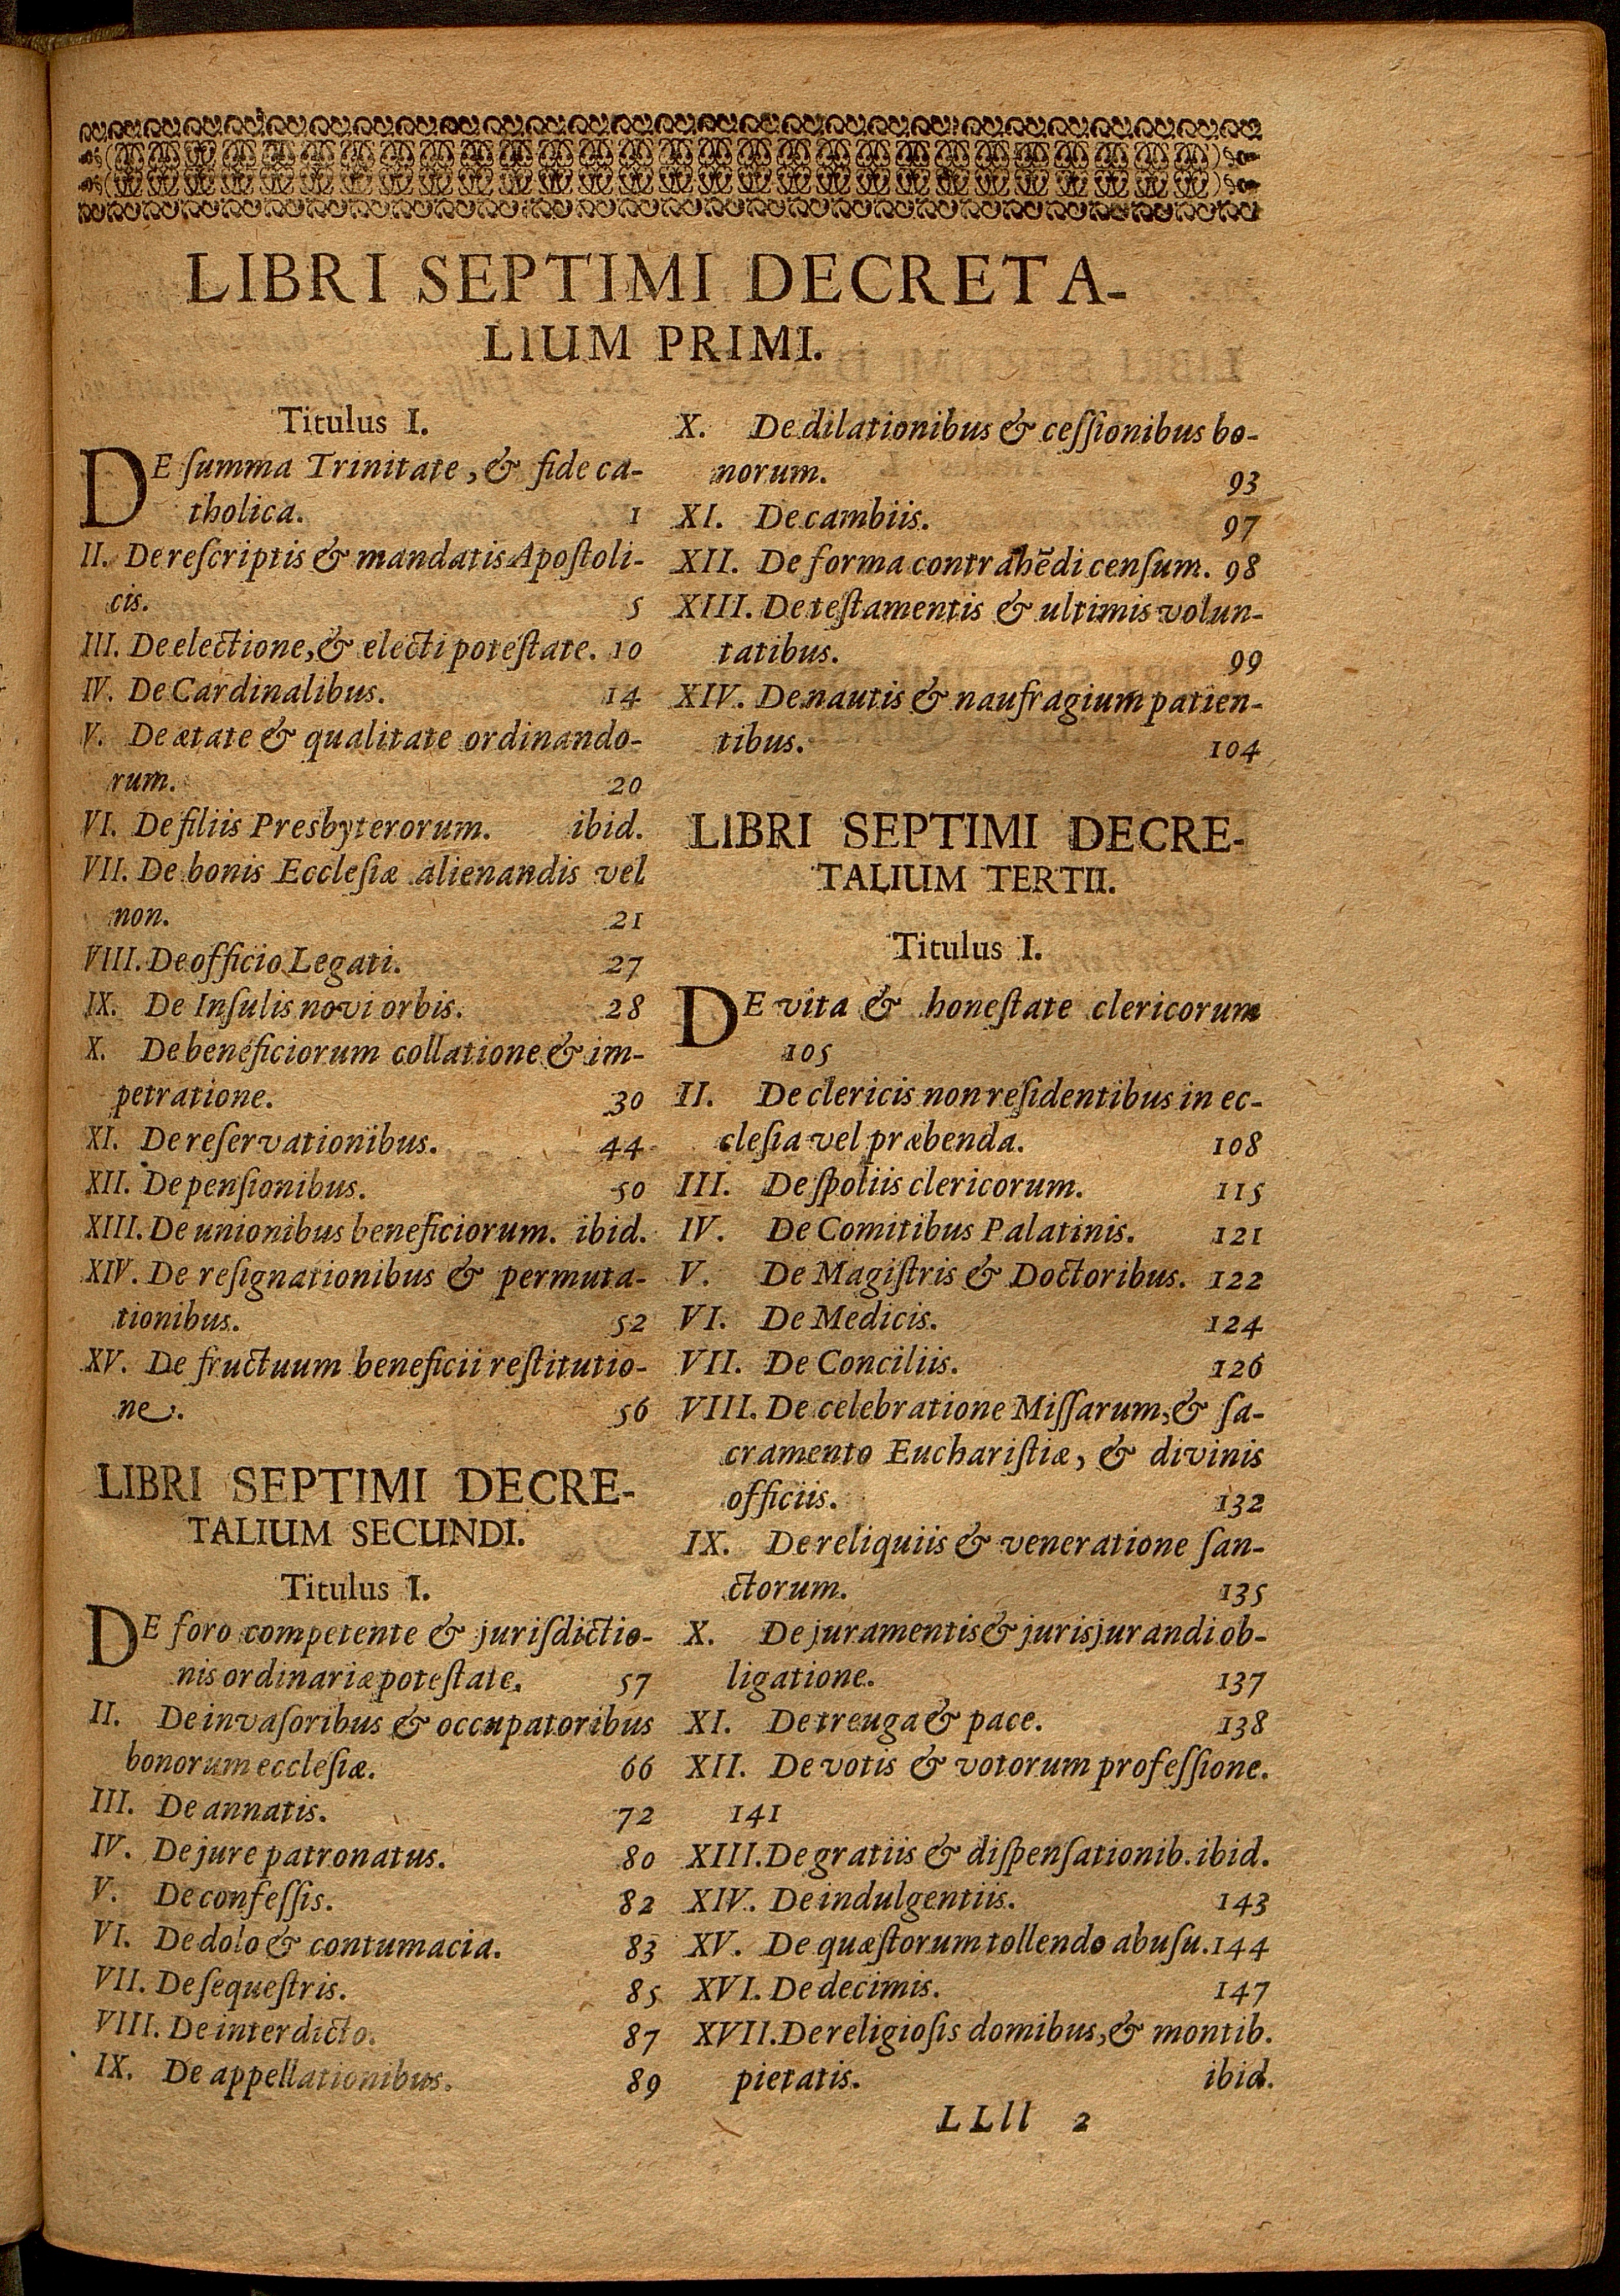 LIBRI SEPTIMI DECRETA-
LIUM PRIMI.
Titulus I.
DE ſumma Trinitate, & fide ca-
tholica. 1
II. De reſcriptis & mandatis Apoſtoli-
cis. 5
III. De electione, & electi poteſtate. 10
IV. De Cardinalibus. 14
V. De ætate & qualitate ordinando-
rum. 20
VI. De filiis Presbyterorum. ibid.
VII. De bonis Eccleſiæ alienandis vel
non. 21
VIII. De officio Legati. 27
IX. De Inſulis novi orbis. 28
X. De beneficiorum collatione & im-
petratione. 30
XI. De reſervationibus. 44
XII. De penſionibus. 50
XIII. De unionibus beneficiorum. ibid.
XIV. De reſignationibus & permuta-
tionibus. 52
XV. De fructuum beneficii reſtitutio-
ne. 56
LIBRI SEPTIMI DECRE-
TALIUM SECUNDI.
Titulus I.
DE foro competente & juriſdictio-
nis ordinariæ poteſtate. 57
II. De invaſoribus & occupatoribus
bonorum eccleſiæ. 66
III. De annatis. 72
IV. De jure patronatus. 80
V. De confeſſis. 82
VI. De dolo & contumacia. 83
VII. De ſequeſtris. 85
VIII. De interdicto. 87
IX. De appellationibus. 89
X. De dilationibus & ceſſionibus bo-
norum. 93
XI. De cambiis. 97
XII. De forma contrahēdi cenſum. 98
XIII. De teſtamentis & ultimis volun-
tatibus. 99
XIV. De nautis & naufragium patien-
tibus. 104
LIBRI SEPTIMI DECRE-
TALIUM TERTII.
Titulus I.
DE vita & honeſtate clericorum
105
II. De clericis non reſidentibus in ec-
cleſia vel præbenda. 108
III. De ſpoliis clericorum. 115
IV. De Comitibus Palatinis. 121
V. De Magiſtris & Doctoribus. 122
VI. De Medicis. 124
VII. De Conciliis. 126
VIII. De celebratione Miſſarum, & ſa-
cramento Euchariſtiæ, & divinis
officiis. 132
IX. De reliquiis & veneratione ſan-
ctorum. 135
X. De juramentis & jurisjurandi ob-
ligatione. 137
XI. De treuga & pace. 138
XII. De votis & votorum profeſſione.
141
XIII. De gratiis & diſpenſationib. ibid.
XIV. De indulgentiis. 143
XV. De quæſtorum tollendo abuſu. 144
XVI. De decimis. 147
XVII. De religioſis domibus, & montib.
pietatis. ibid.
LLll 2